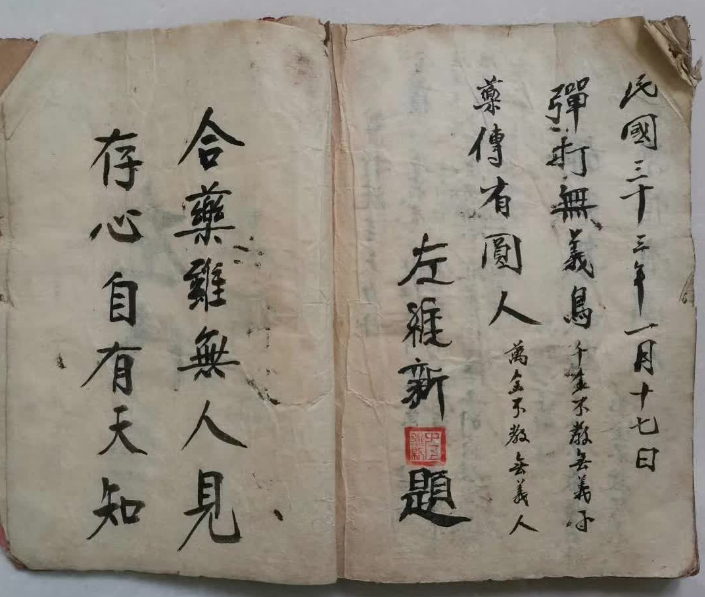 民國三十三年一月十七日
彈打無義鳥 千金不教無義子
藥傳有圓人 萬金不教無義人
左維新 題
合藥雖無人見
存心自有天知